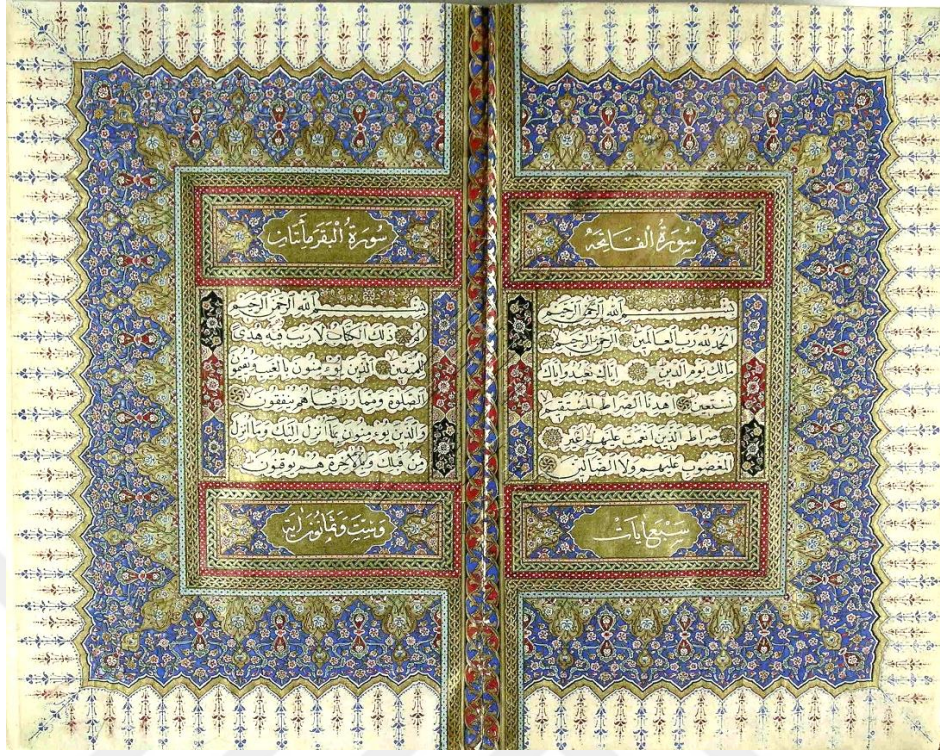 سُورَةُ الْفَاتِحَةِ
بِسْمِ اللهِ الرَّحْمٰنِ الرَّحِيمِ
اَلْحَمْدُ لِلّٰهِ رَبِّ الْعَالَمِينَ الرَّحْمٰنِ الرَّحِيمِ
مَالِكِ يَوْمِ الدِّينِ اِيَّاكَ نَعْبُدُ وَاِيَّاكَ
نَسْتَعِينُ اِهْدِنَا الصِّرَاطَ الْمُسْتَقِيمَ
صِرَاطَ الَّذِينَ اَنْعَمْتَ عَلَيْهِمْ غَيْرِ
الْمَغْضُوبِ عَلَيْهِمْ وَلَا الضَّالِّينَ
سَبْعُ اٰيَاتٍ
سُورَةُ الْبَقَرَةِ مِأَتَانِ
بِسْمِ اللهِ الرَّحْمٰنِ الرَّحِيمِ
الٓمٓ ذٰلِكَ الْكِتَابُ لَا رَيْبَ فِيهِ هُدًى
لِلْمُتَّقِينَ الَّذِينَ يُؤْمِنُونَ بِالْغَيْبِ وَيُقِيمُونَ
الصَّلٰوةَ وَمِمَّا رَزَقْنَاهُمْ يُنْفِقُونَ
وَالَّذِينَ يُؤْمِنُونَ بِمَا اُنْزِلَ اِلَيْكَ وَمَا اُنْزِلَ
مِنْ قَبْلِكَ وَبِالْاٰخِرَةِ هُمْ يُوقِنُونَ
وَسِتٌّ وَثَمَانُونَ اٰيَةً